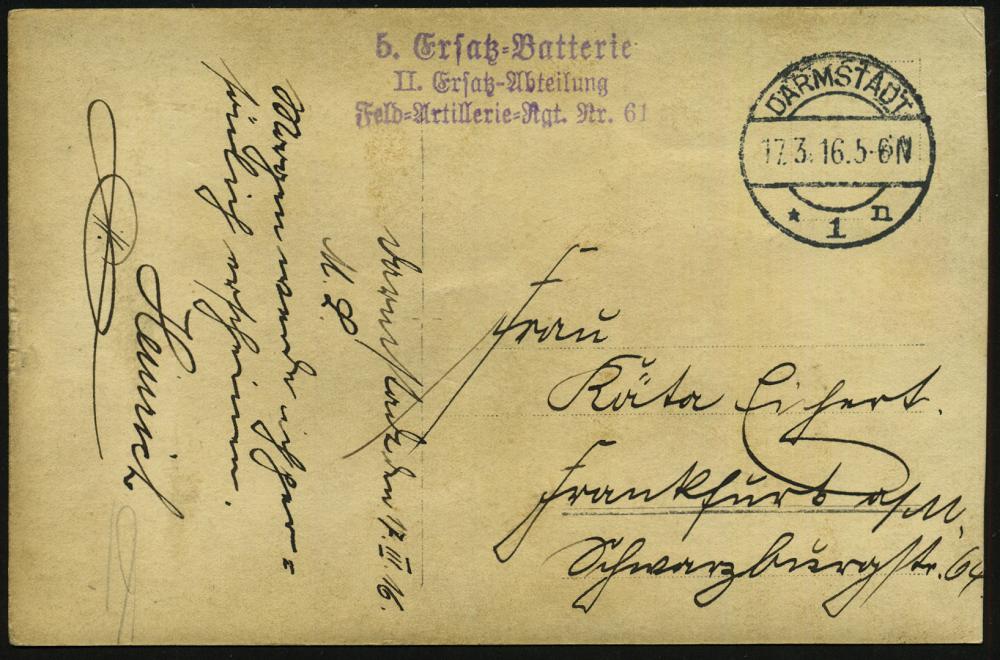 5. Ersatz-Batterie
II. Ersatz-Abteilung
Feld-Artillerie-Rgt. Nr. 61
DARMSTADT
17.3.16.5-6N
* 1 n
Darmstadt den 17.III.16.
M. L.
Morgen werde ich per=
sönlich erscheinen.
Heinrich
Frau
Käta Eichert.
Frankfurt a/M.
Schwarzburgstr. 64